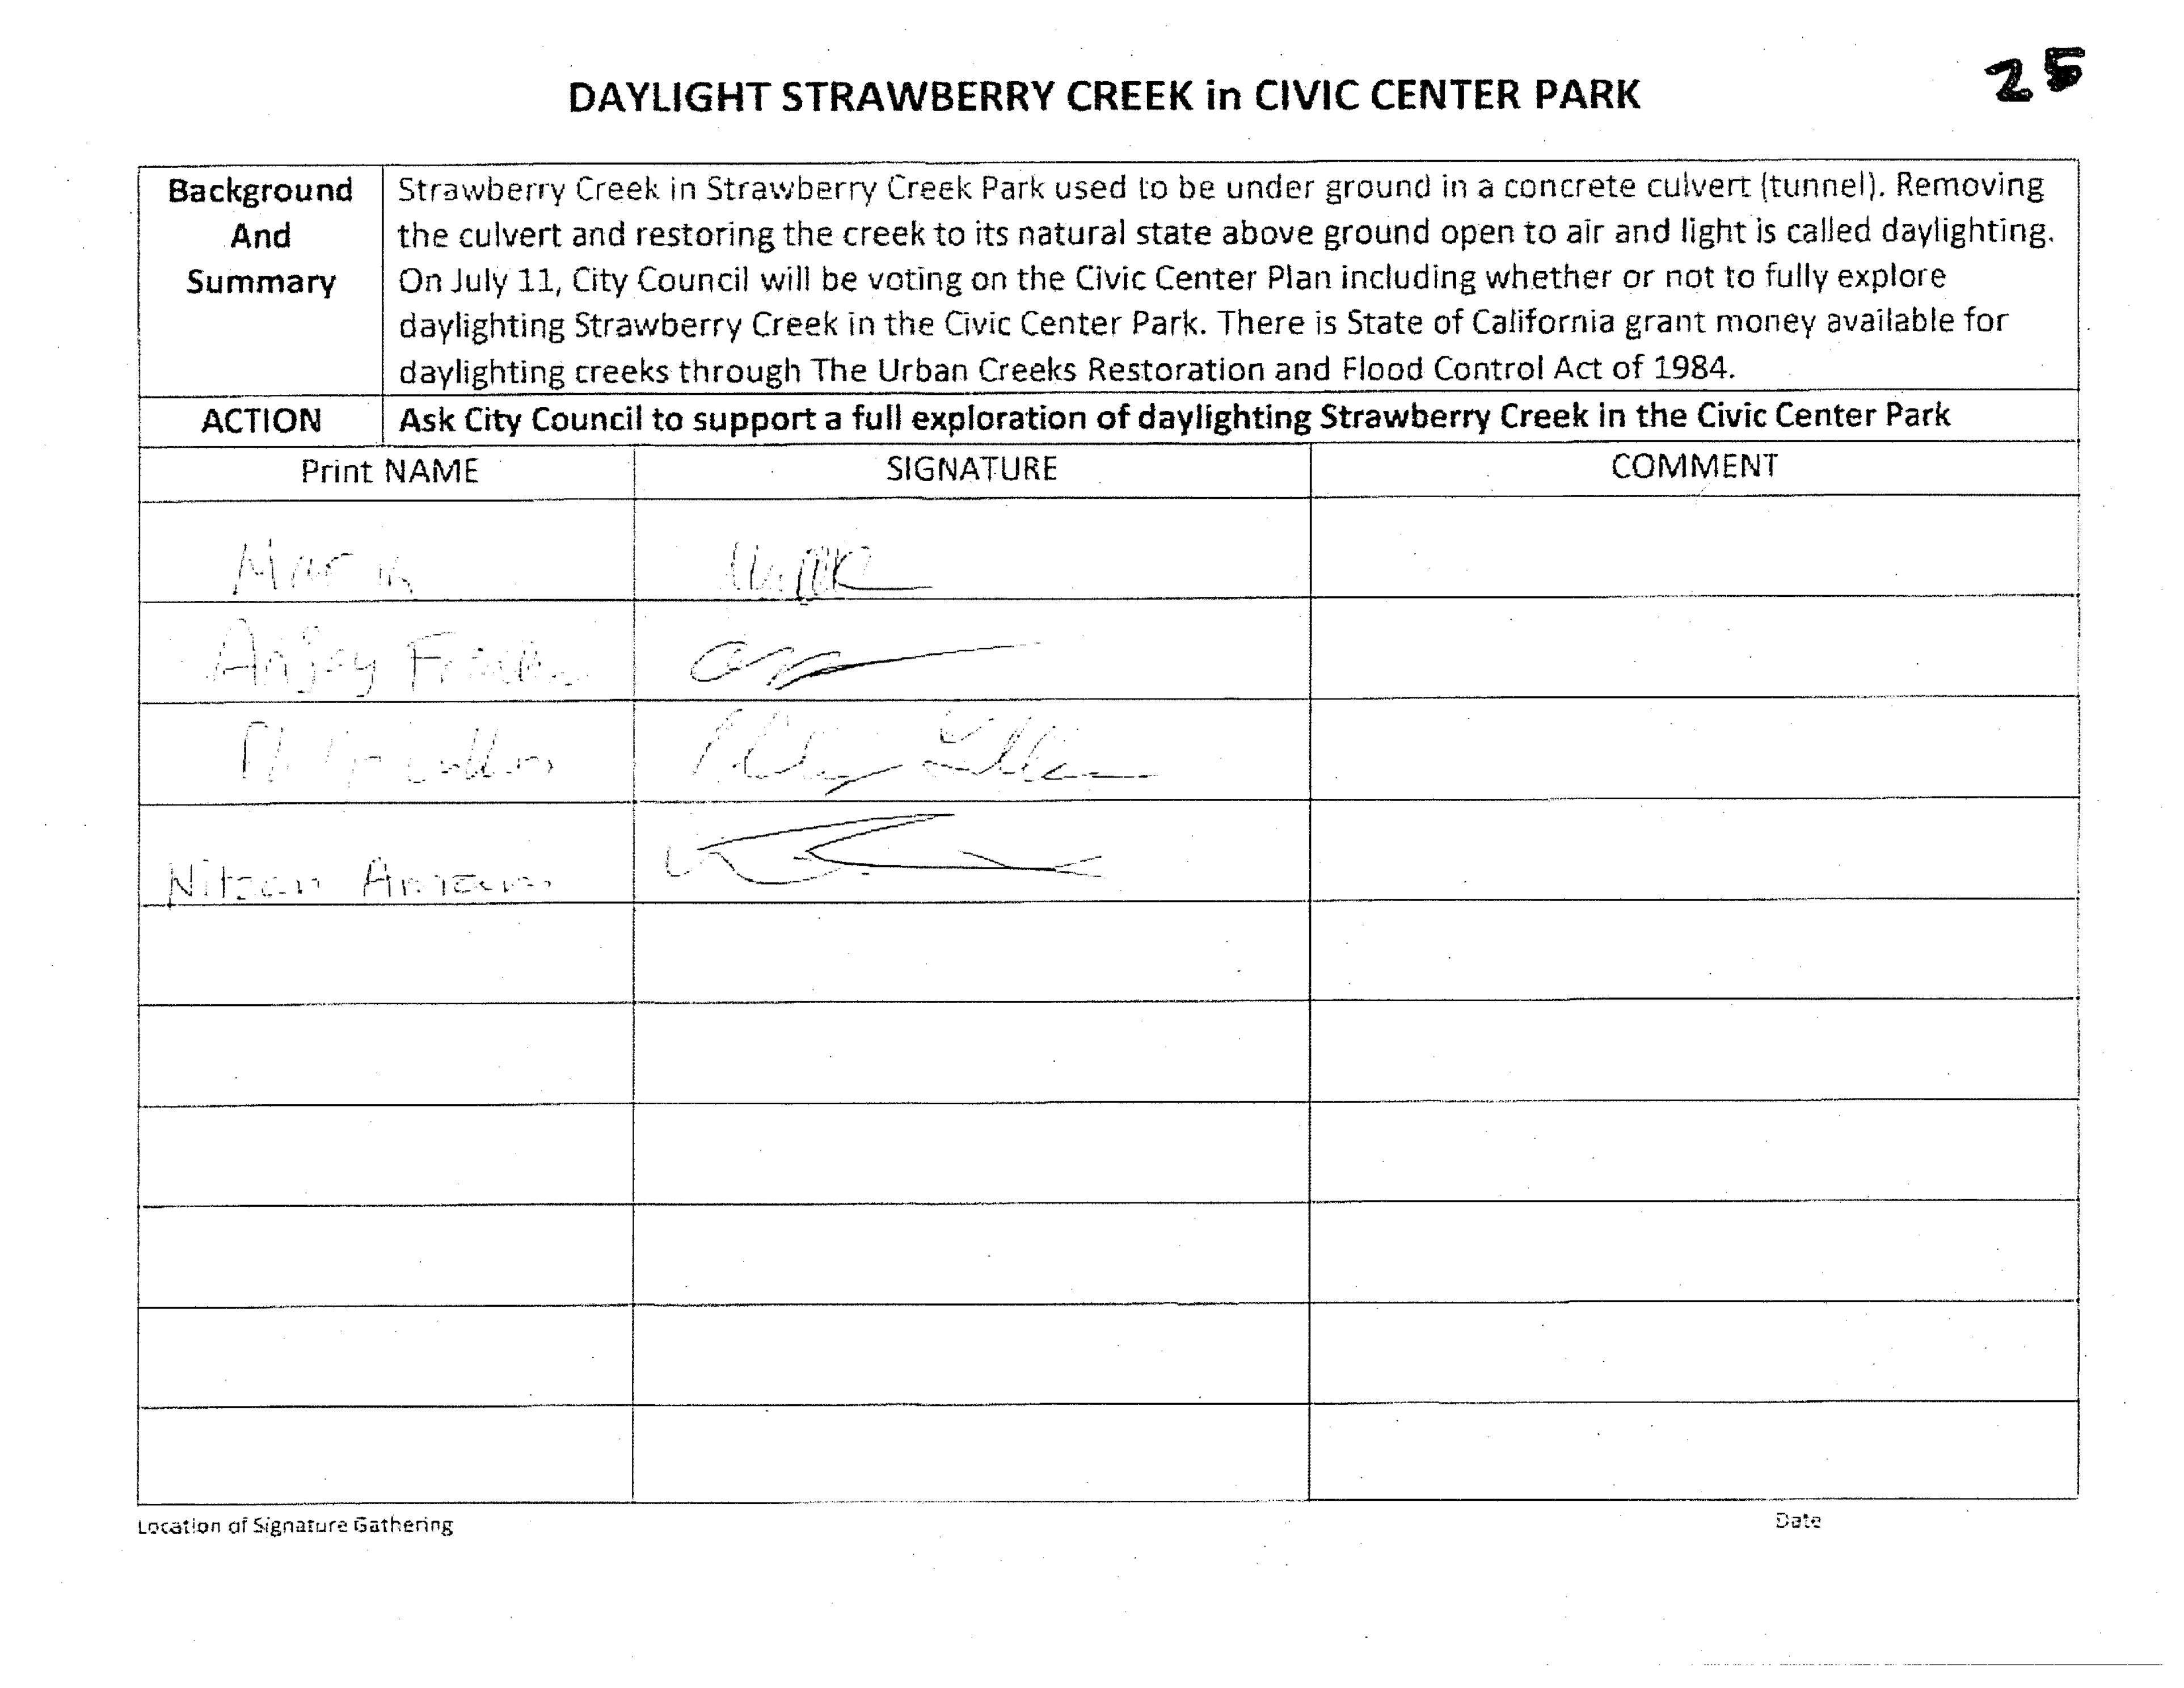 25
DAYLIGHT STRAWBERRY CREEK in CIVIC CENTER PARK
Background And Summary
Strawberry Creek in Strawberry Creek Park used to be under ground in a concrete culvert (tunnel). Removing
the culvert and restoring the creek to its natural state above ground open to air and light is called daylighting.
On July 11, City Council will be voting on the Civic Center Plan including whether or not to fully explore
daylighting Strawberry Creek in the Civic Center Park. There is State of California grant money available for
daylighting creeks through The Urban Creeks Restoration and Flood Control Act of 1984.
ACTION Ask City Council to support a full exploration of daylighting Strawberry Creek in the Civic Center Park
Print NAME SIGNATURE COMMENT
Anjay
Philip Collins
Nitzan
Location of Signature Gathering Date